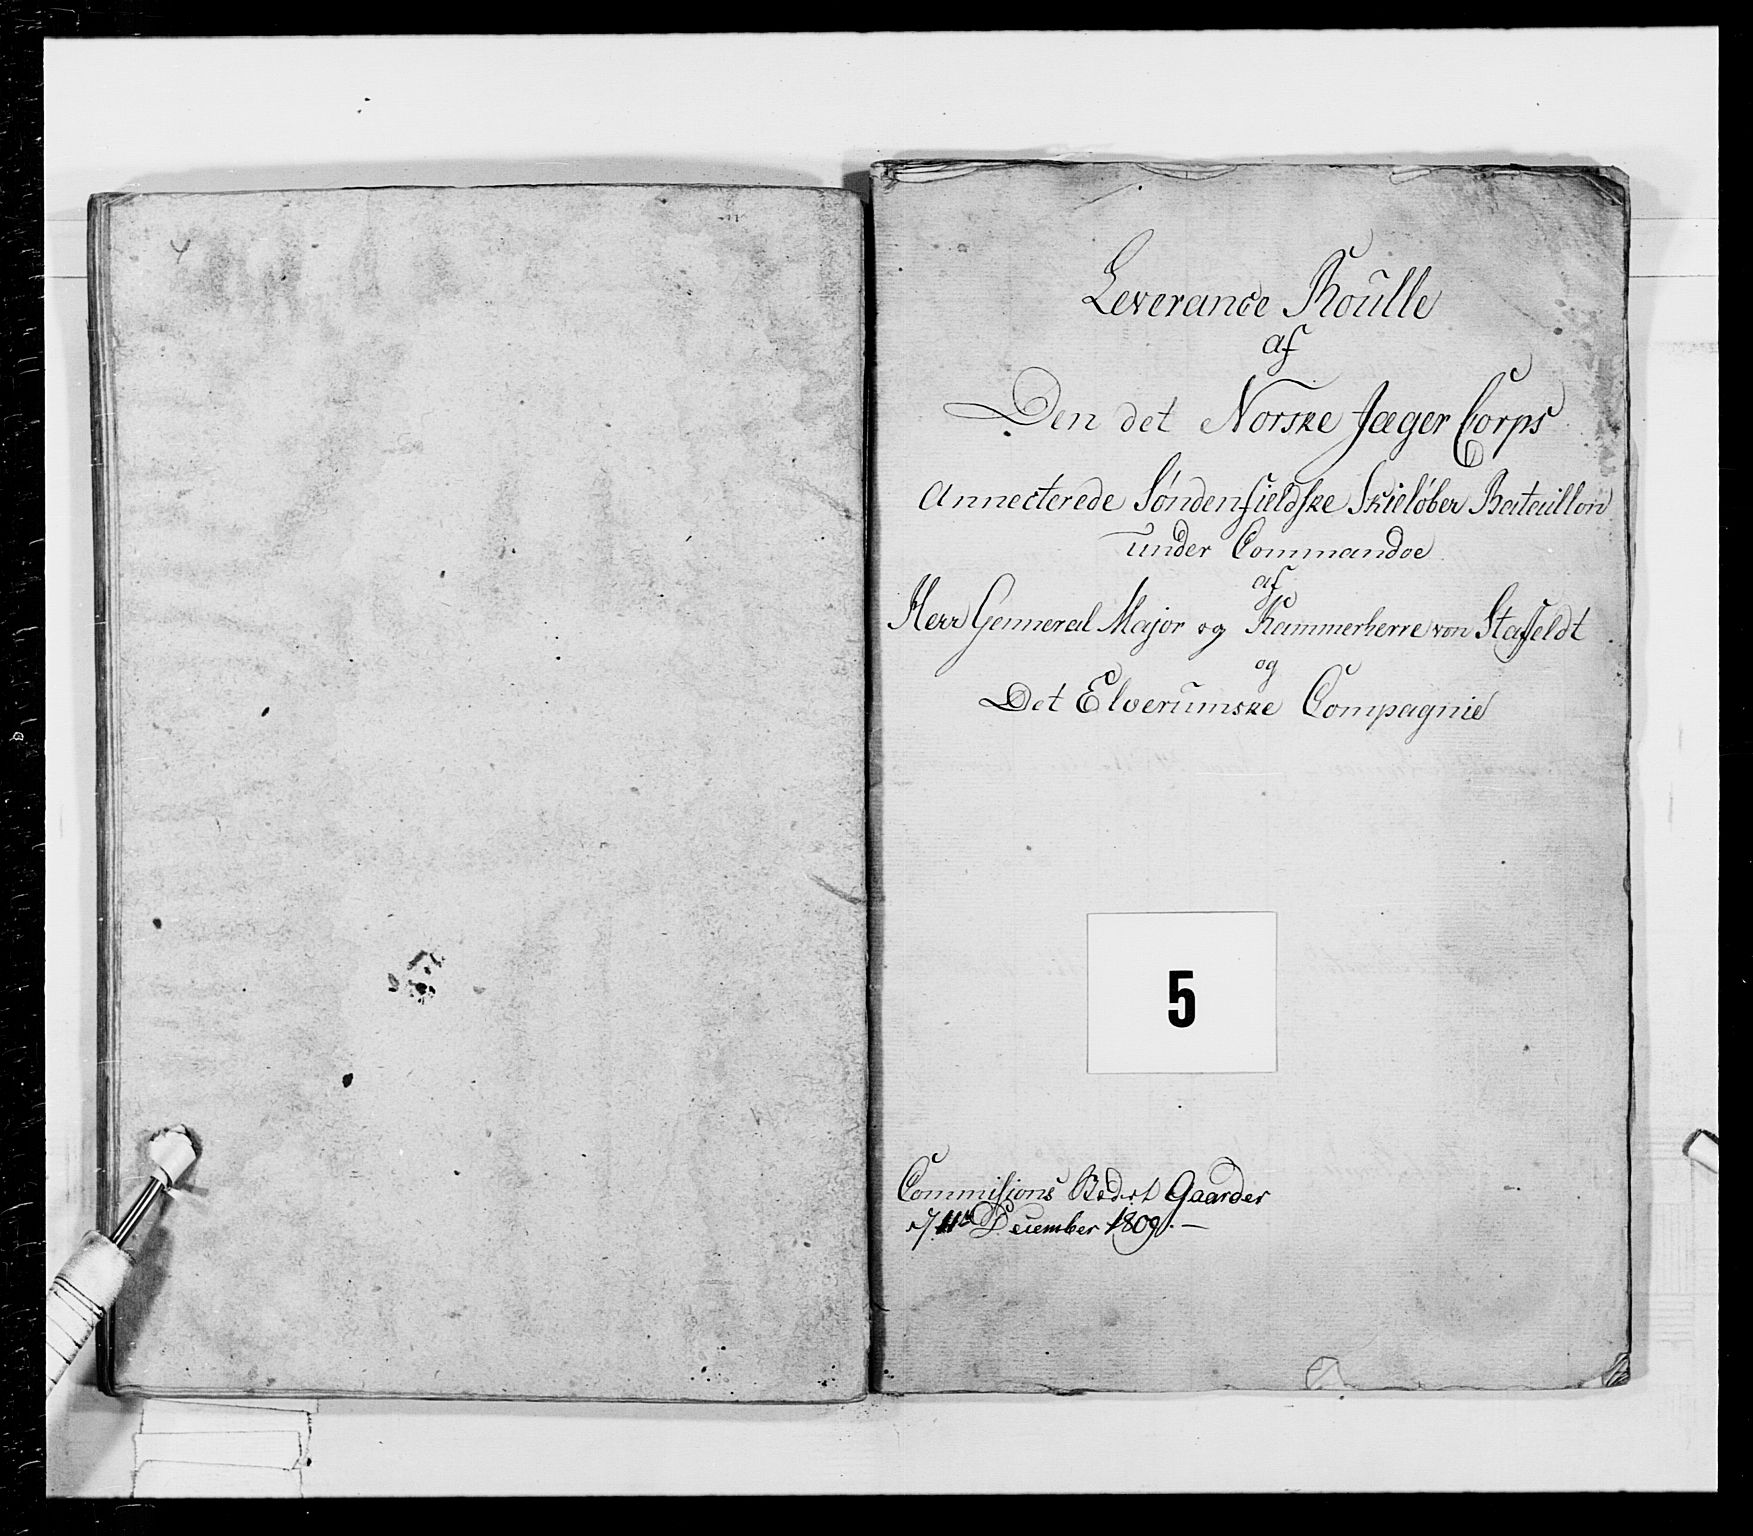 Leverance Roülle
af
Den det Norske Jæger Corps
Annecterede Søndenfieldske Skieløber Bataillon
under Commandoe
af
Herr Genneral Major og Kammerherre von Staffeldt
og
Det Elverumske Compagnie
5
Commisions Gaarder
11te December 1809. —